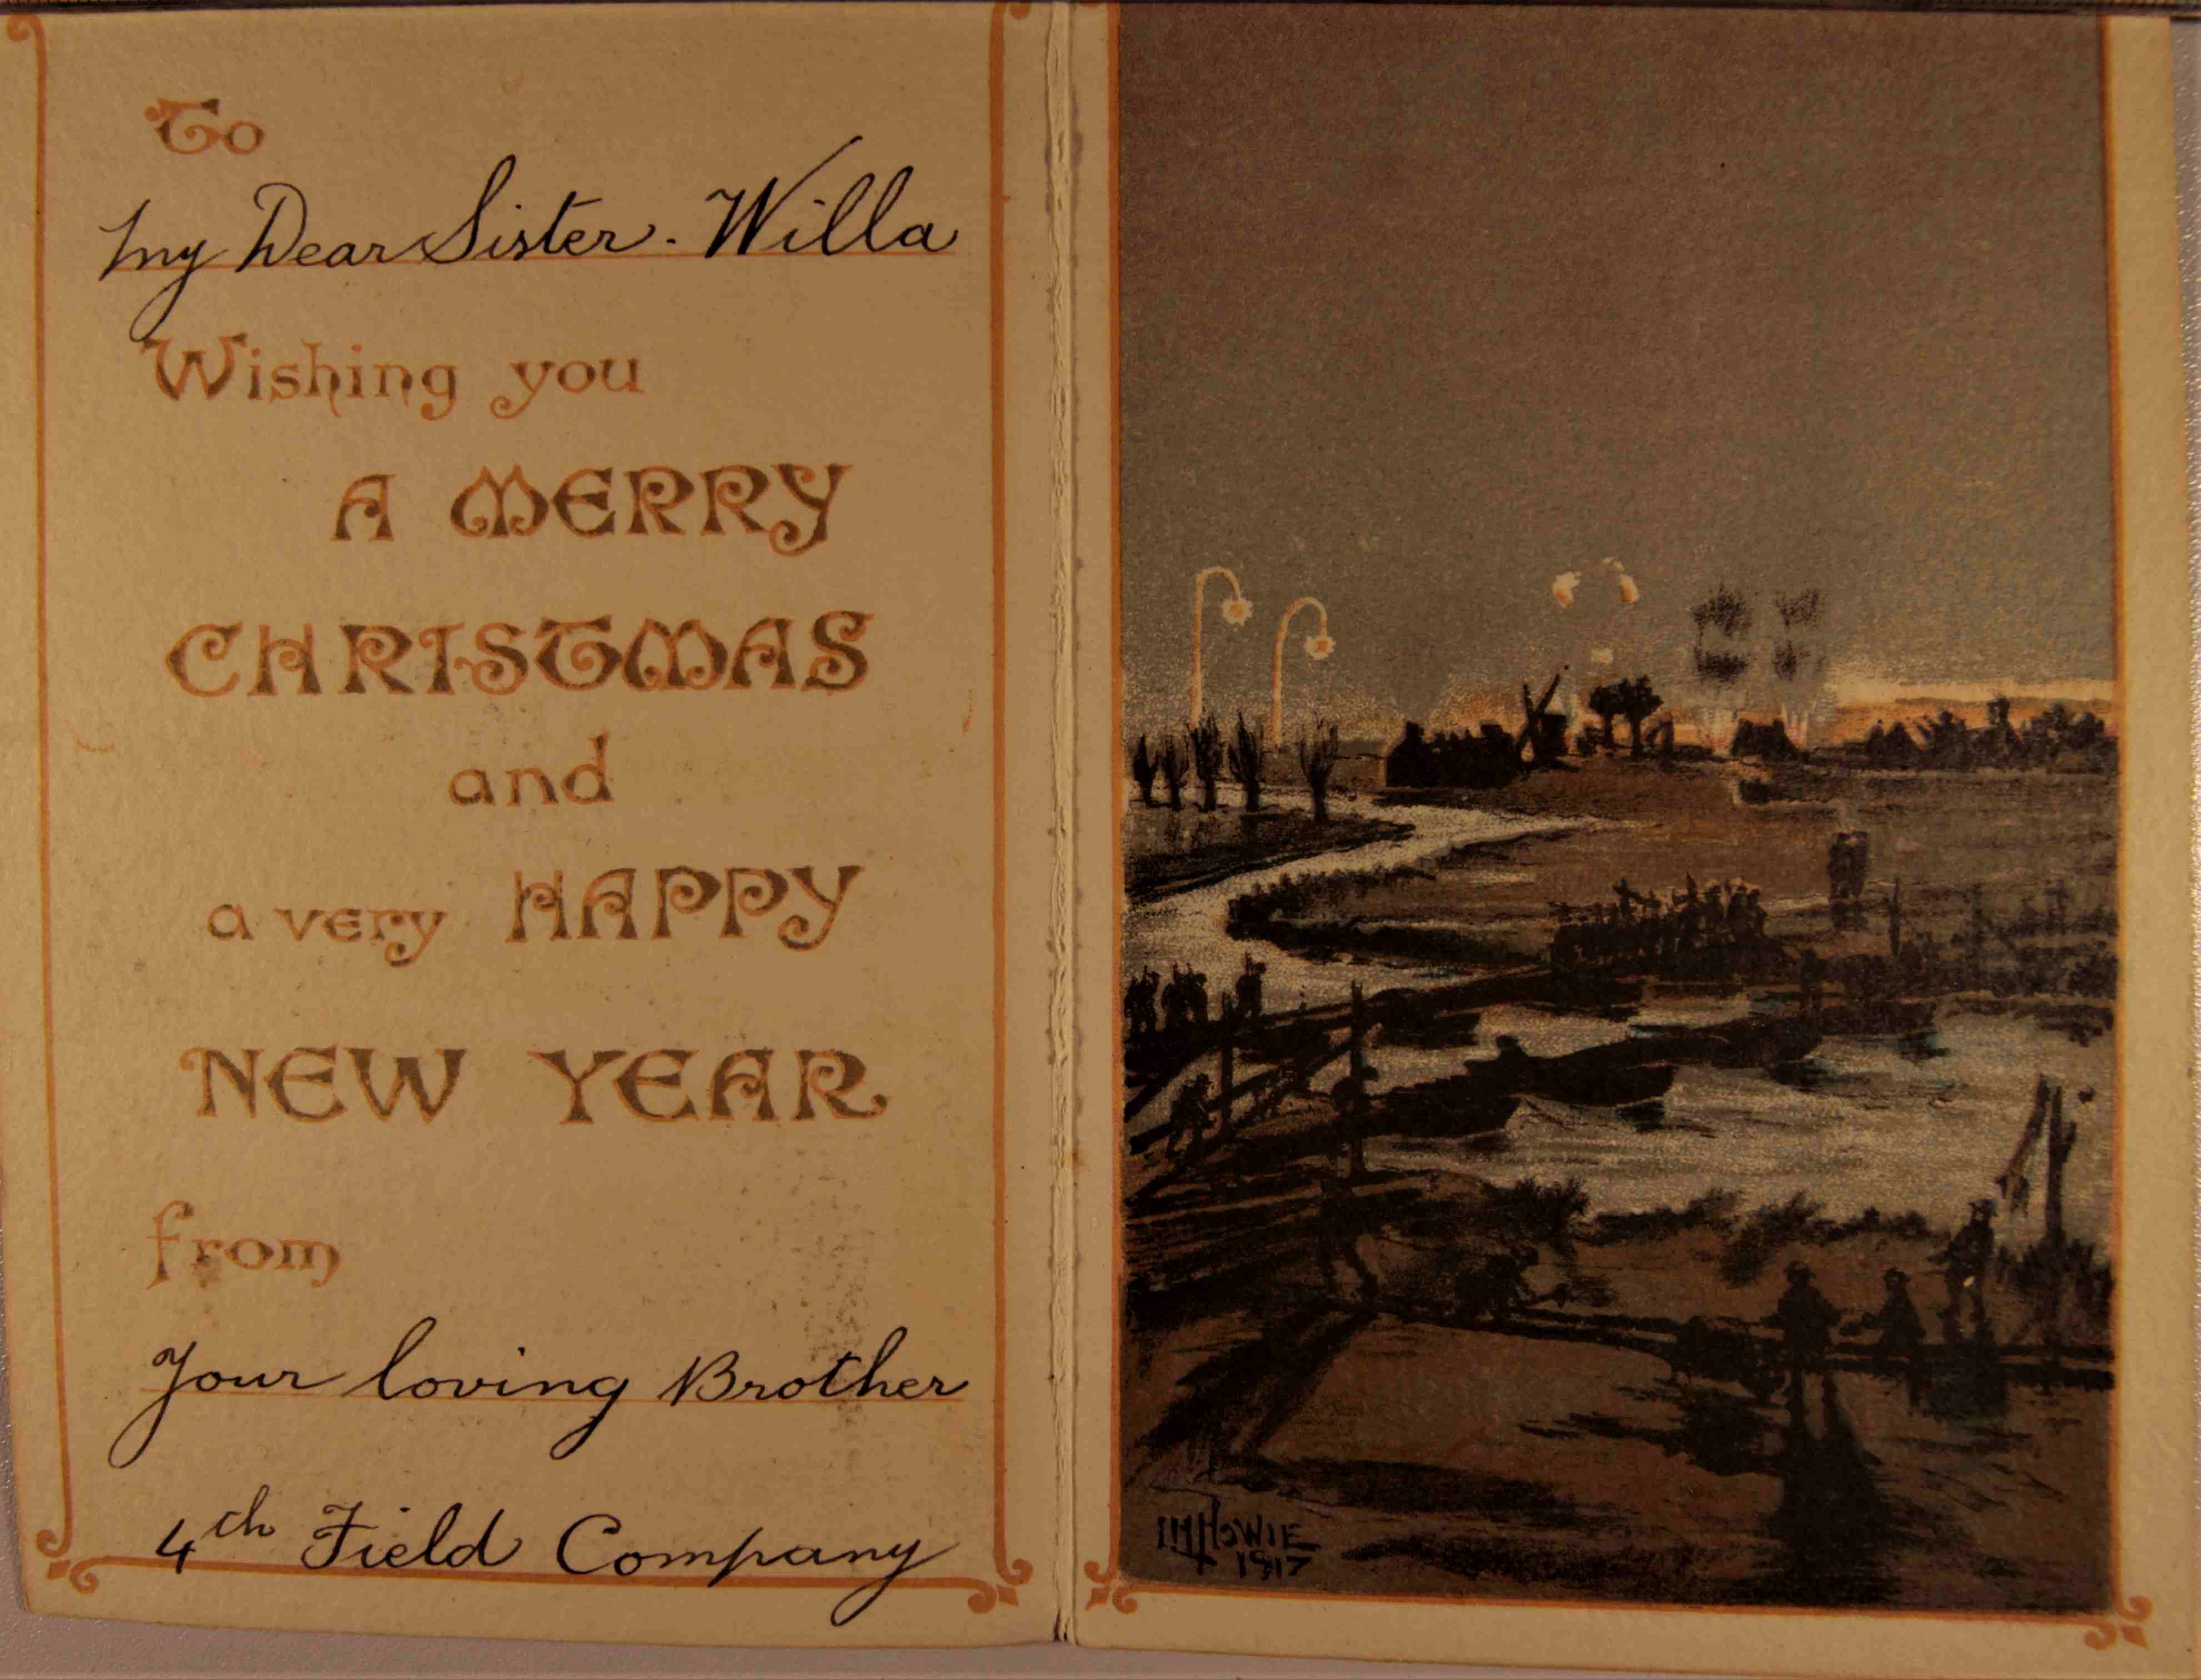 To
My Dear Sister. Willa
Wishing you
A MERRY
CHRISTMAS
and
a very HAPPY
NEW YEAR
from
Your loving Brother
4th Field Company
HOWIE
1917